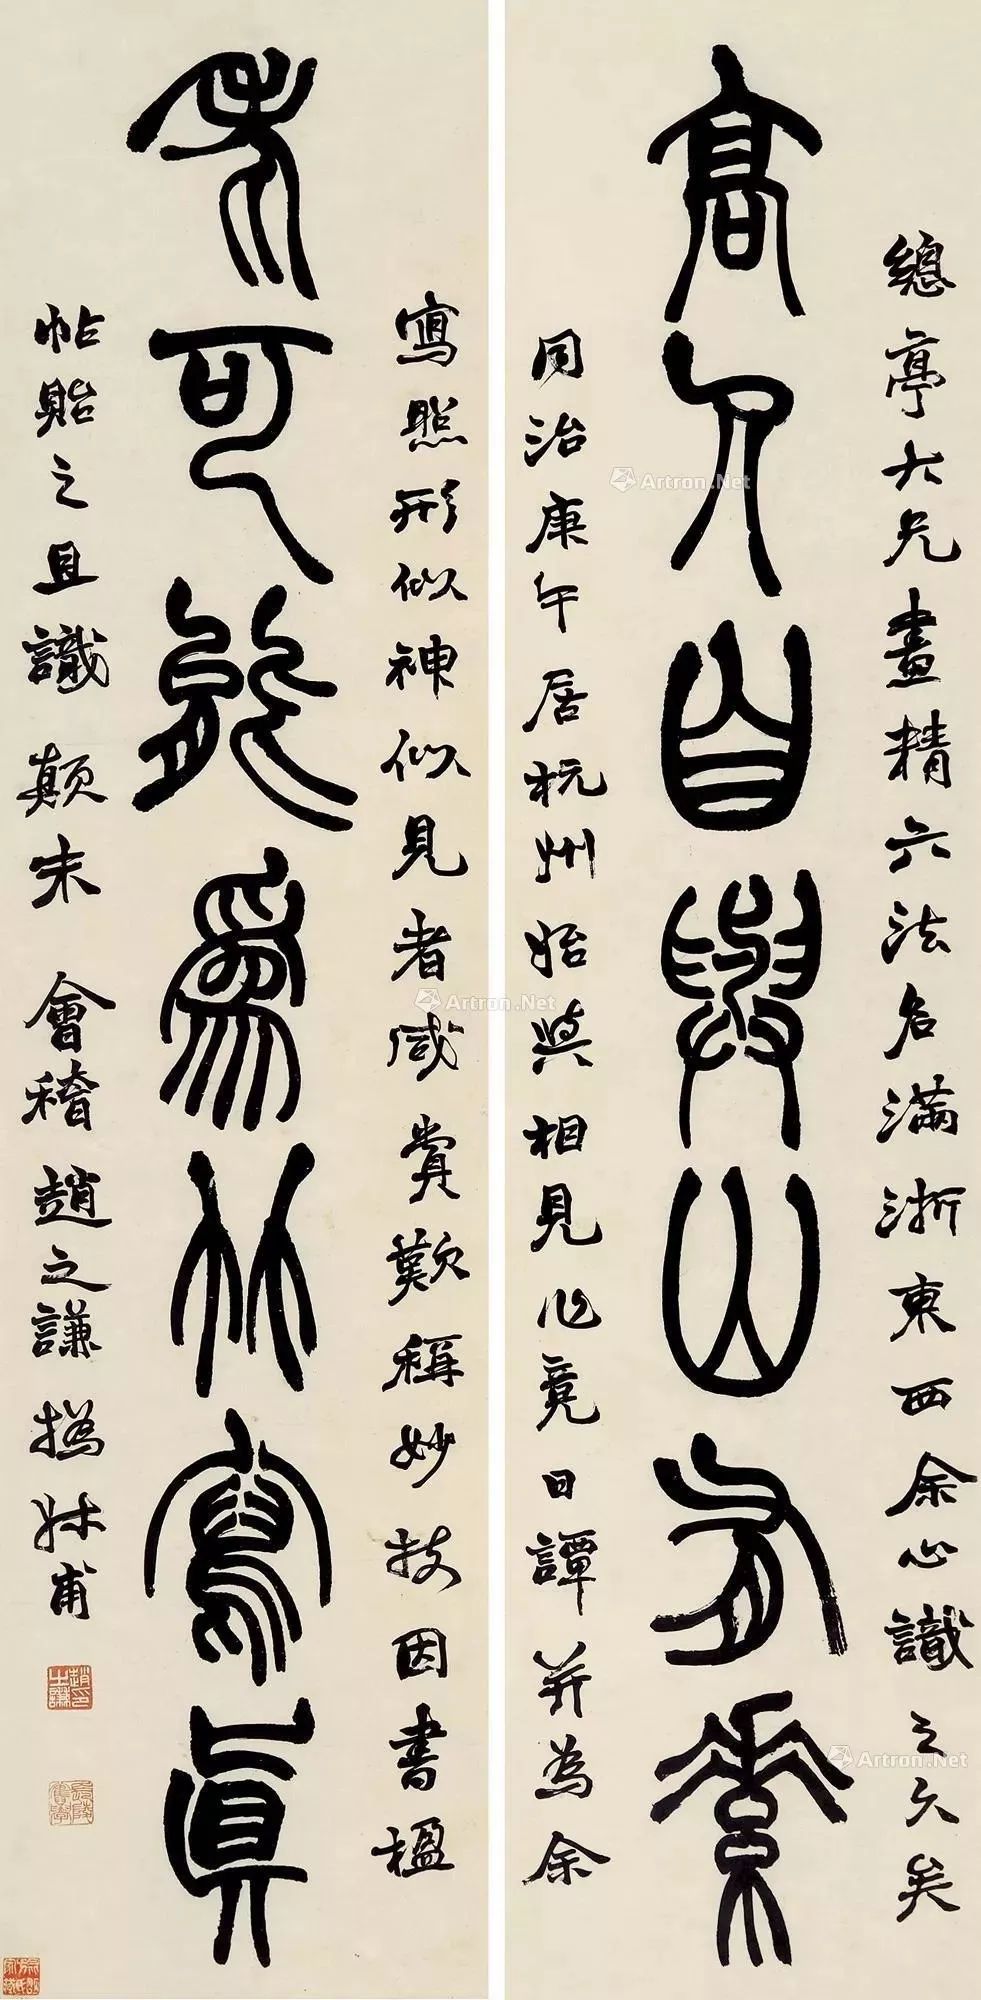 總亭大兄畫精六法名滿浙東西余心識之久矣
高人自與山有素
同治庚午居杭州始與相見作竟日譚并為余
寫照形似神似見者咸賞歎稱妙技因書楹
老可能為竹寫真
帖貽之且識顛末 會稽趙之謙撝叔甫
趙之謙印
Artron.Net
Artron.Net
Artron.Net